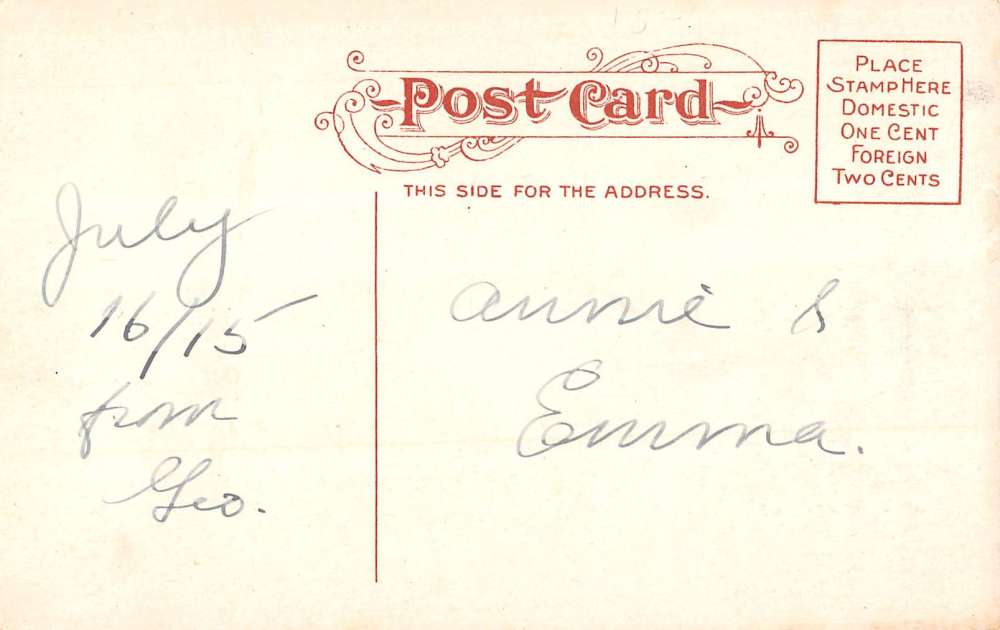 Post Card
PLACE
STAMP HERE
DOMESTIC
ONE CENT
FOREIGN
TWO CENTS
THIS SIDE FOR THE ADDRESS.
July
16/15
from
Geo.
Annie &
Emma.